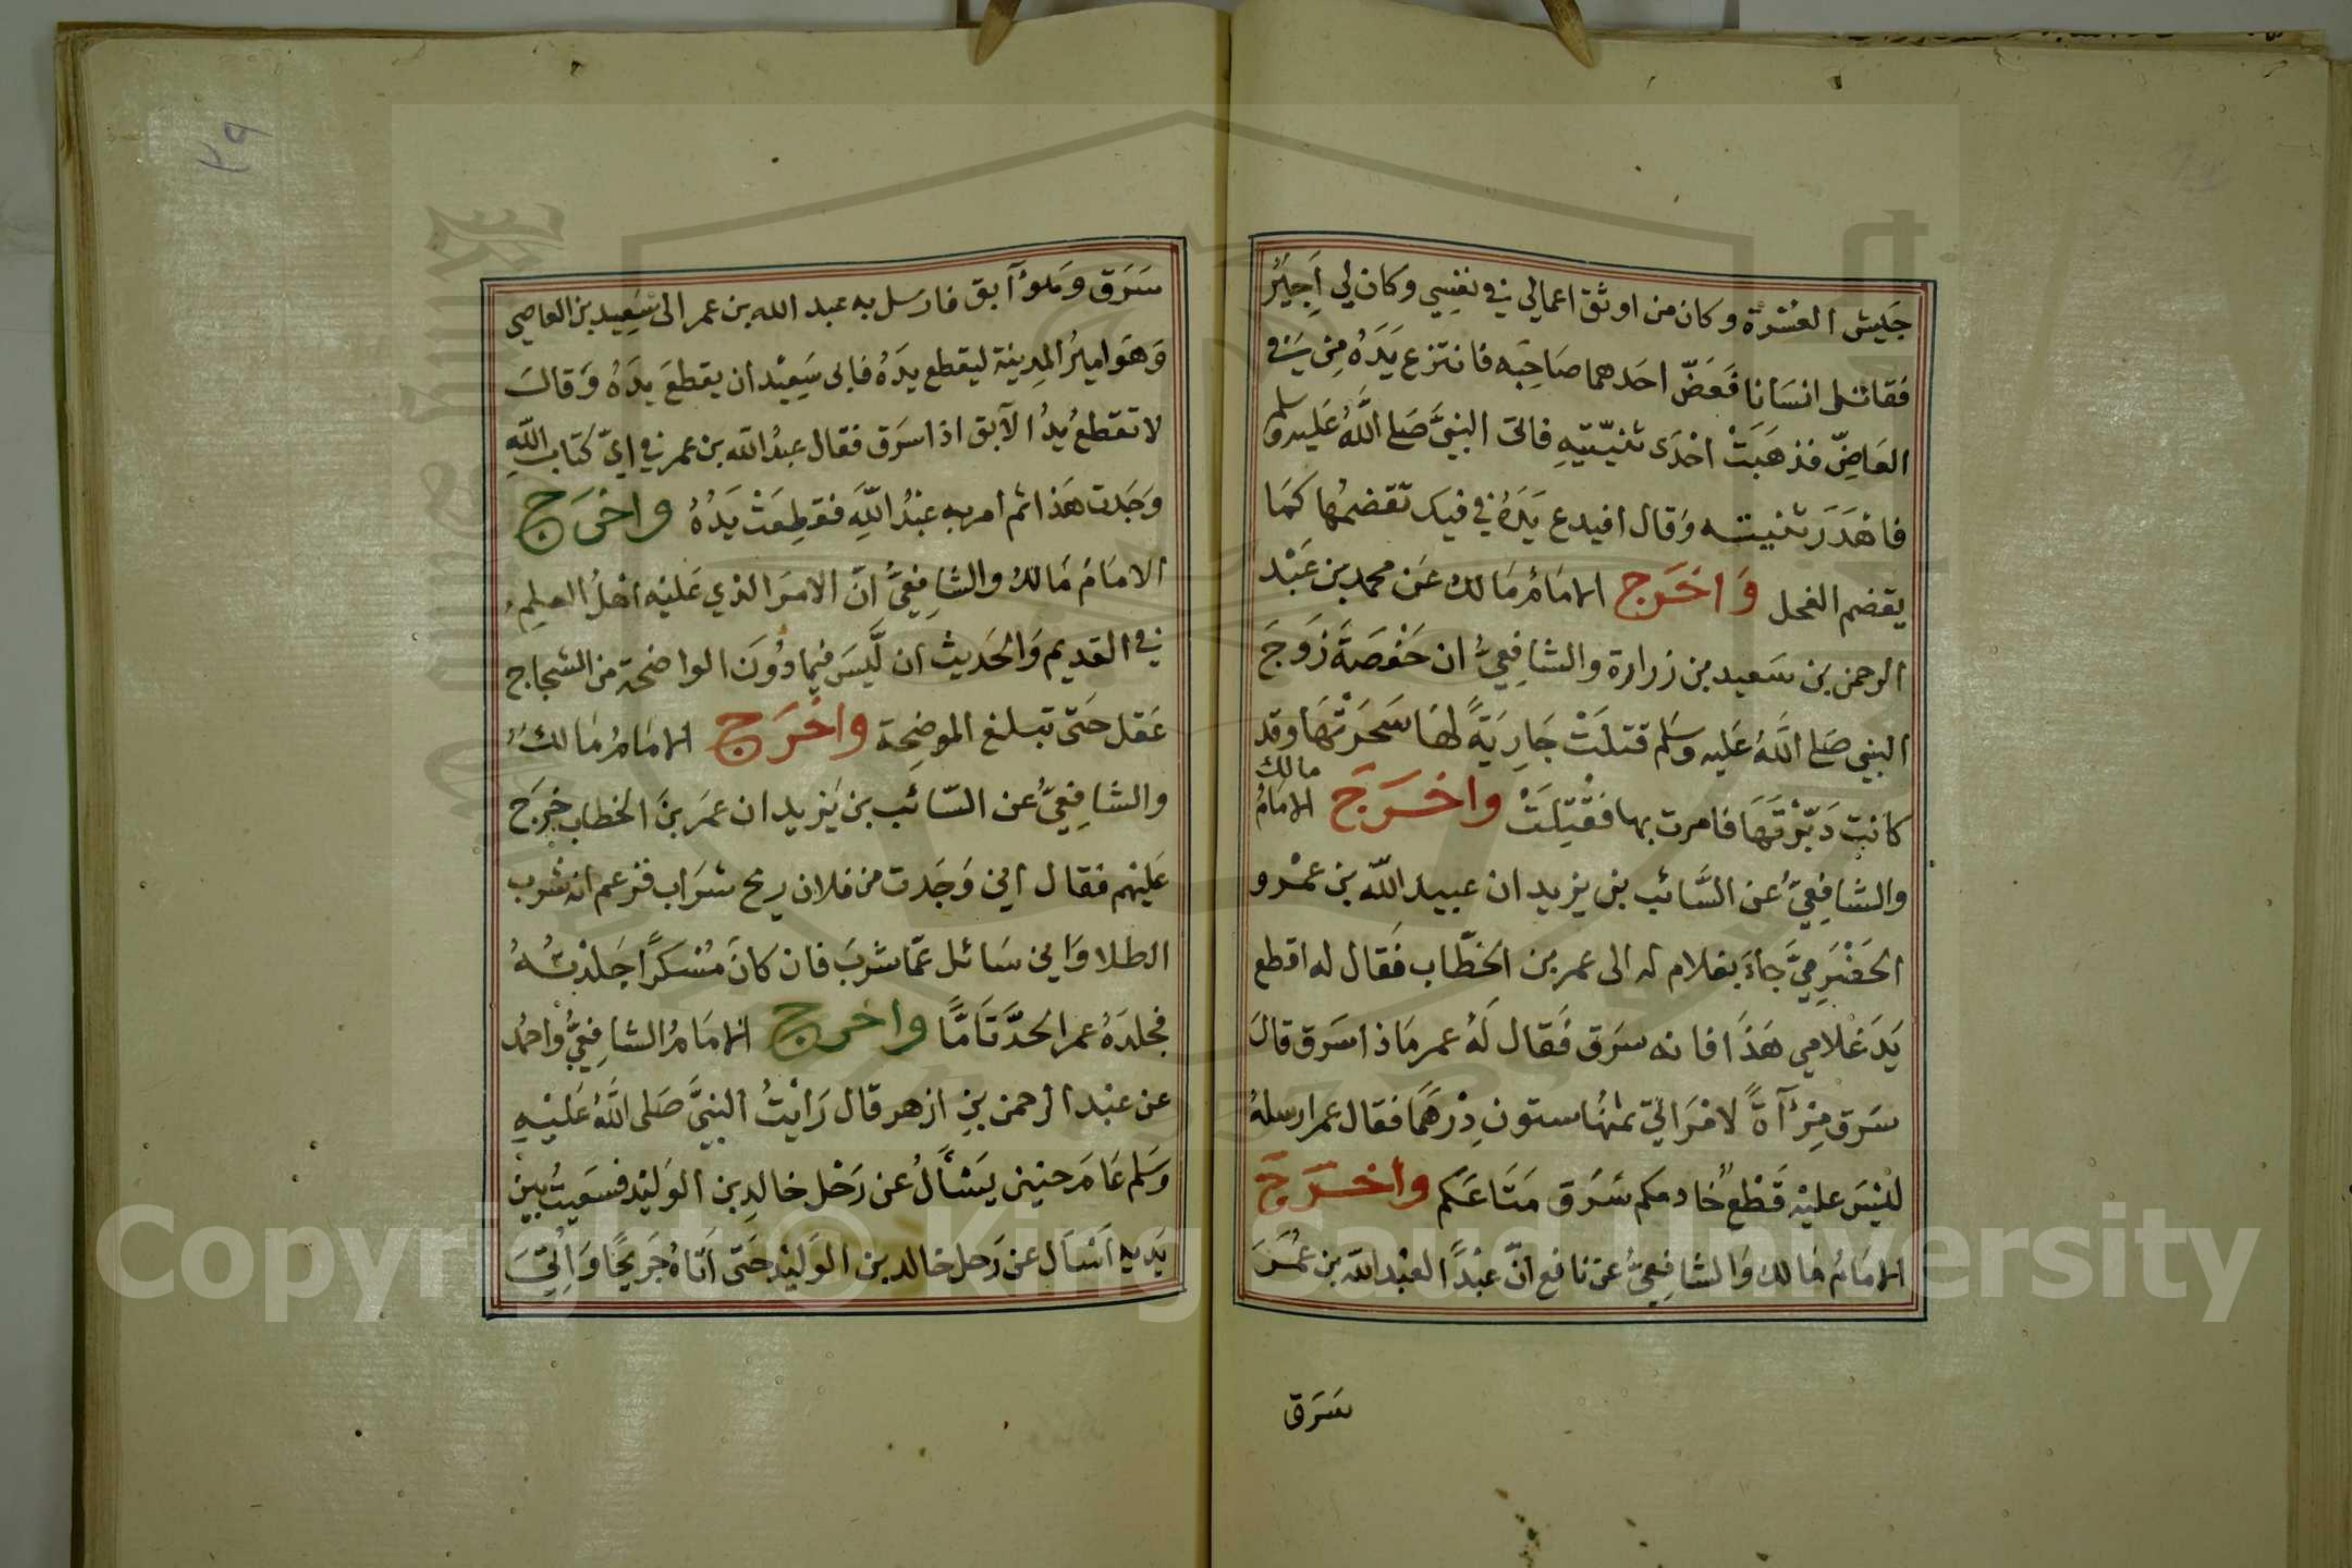 جَيش العُسْرة وكان من اوثق اعمالي في نفسِي وكان لي اَجِيْرٌ
فقاتل انسَانا فَعَضّ احَدهما صَاحِبَه فانتزع يَدَهُ مِن في
العَاضِّ فذهَبَتْ احْدَى ثنيّتيهِ فاتى النبيَّ صَلى اللَّهُ عَليه وسلم
فاهْدَرَ ثنيته وَقال افيدع يَدَهُ في فيك تقضمُها كمَا
يقضم الفحل وَاخَرَج الامَامُ مَالك عَن محمد بن عَبْد
الرحمن بن سَعيد بن زرارة والشافِعيُّ ان حَفْصَةَ زَوجَ
النبي صَلى اللَّهُ عَليه وسَلم قتلَتْ جَارِيَةً لهَا سَحَرَتْهَا وقد
كانت دَبّرْتَهَا فامرت بها فَقُتِلَتْ واخَرَجَ الامَامُ مالك
والشافِعيُّ عن السَّائب بن يزيد ان عبيد اللّه بن عمْرو
الحَضْرَمِيَّ جاءَ بغلام له الى عمر بن الخطّاب فَقال له اقطع
يَدَ غلامي هَذَا فانه سرَق فَقال لَهُ عمر مَاذا سَرَق قالَ
سَرَق مِرْآةً لامْرَاتي ثمنُها ستون دِرْهَمًا فقال عمر ارسلهُ
لَيْسَ عليْه قَطْعٌ خادمكم سَرَق مَتَاعَكم واخَرَجَ
الامَامُ مَالك وَالشافِعيُّ عن نافع انّ عبْدًا لعبْد اللّه بن عُمَرَ
سَرَق
٣٩
سَرَق وَهوَ آبق فارسَل به عبد الله بن عمر الى سَعِيد بن العاصي
وَهوَ اميرُ المدِينة ليقطع يدَهُ فابى سَعِيْد ان يقطعَ يدَهُ وَقالَ
لا تقطعُ يدُ الآبق اذا سَرَق فقال عبدُ اللّه بن عمر في ايّ كتاب اللّهِ
وَجَدت هَذا ثم امر به عبْدُ اللّهِ فقطِعَتْ يَدُهُ واخرَج
الامَامُ مَالكٌ والشافِعيُّ انّ الامرَ الذي عَليْه اهْلُ العِلمِ
في القديم وَالحَديث ان لَّيسَ فيما دُونَ الواضحة من الشجاج
عَقل حَتى تبلغ الموضِحة واخْرَج الامَامُ مَالكٌ
والشافِعيُّ عن السّائب بن يَزيد ان عمَر بنَ الخطاب خرَج
عَليْهم فقال اني وَجَدت من فلان ريح شرَاب فزعم انه شرب
الطلا وَاني سَائل عمّا شربَ فان كانَ مُسْكرًا جَلدْتُهُ
فجلدَهُ عمر الحدَّ تَامًّا واخرج الامَامُ الشافِعيُّ واحمُد
عن عبْد الرحمن بنِ ازهر قال رَايْتُ النبيَّ صَلى اللَّهُ عَليْهِ
وَسَلم عَامَ حنين يَسْأَلُ عن رَحْل خالدِ بن الوَليْد فسَعَيتُ بين
يَديه اَسْأَل عن رَحل خالد بن الوَليْد حَتى اَتَاهُ جَرِيحًا وَاُتيَ